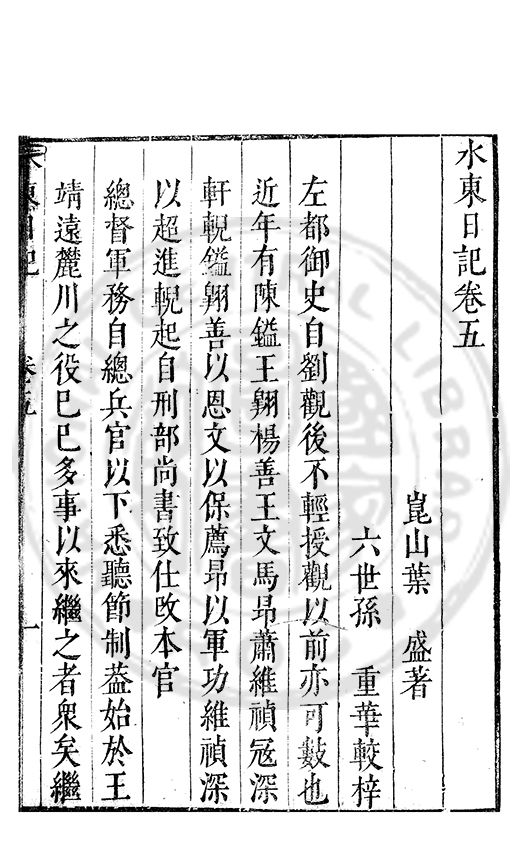 水東日記卷五
崑山葉　盛著
六世孫　重華較梓
左都御史自劉觀後不輕授觀以前亦可數也
近年有陳鎰王翺楊善王文馬昂蕭維禎寇深
軒輗鎰翺善以恩文以保薦昂以軍功維禎深
以超進輗起自刑部尚書致仕改本官
總督軍務自總兵官以下悉聽節制葢始於王
靖遠麓川之役巳巳多事以來繼之者衆矣繼
水東日記　卷五　一